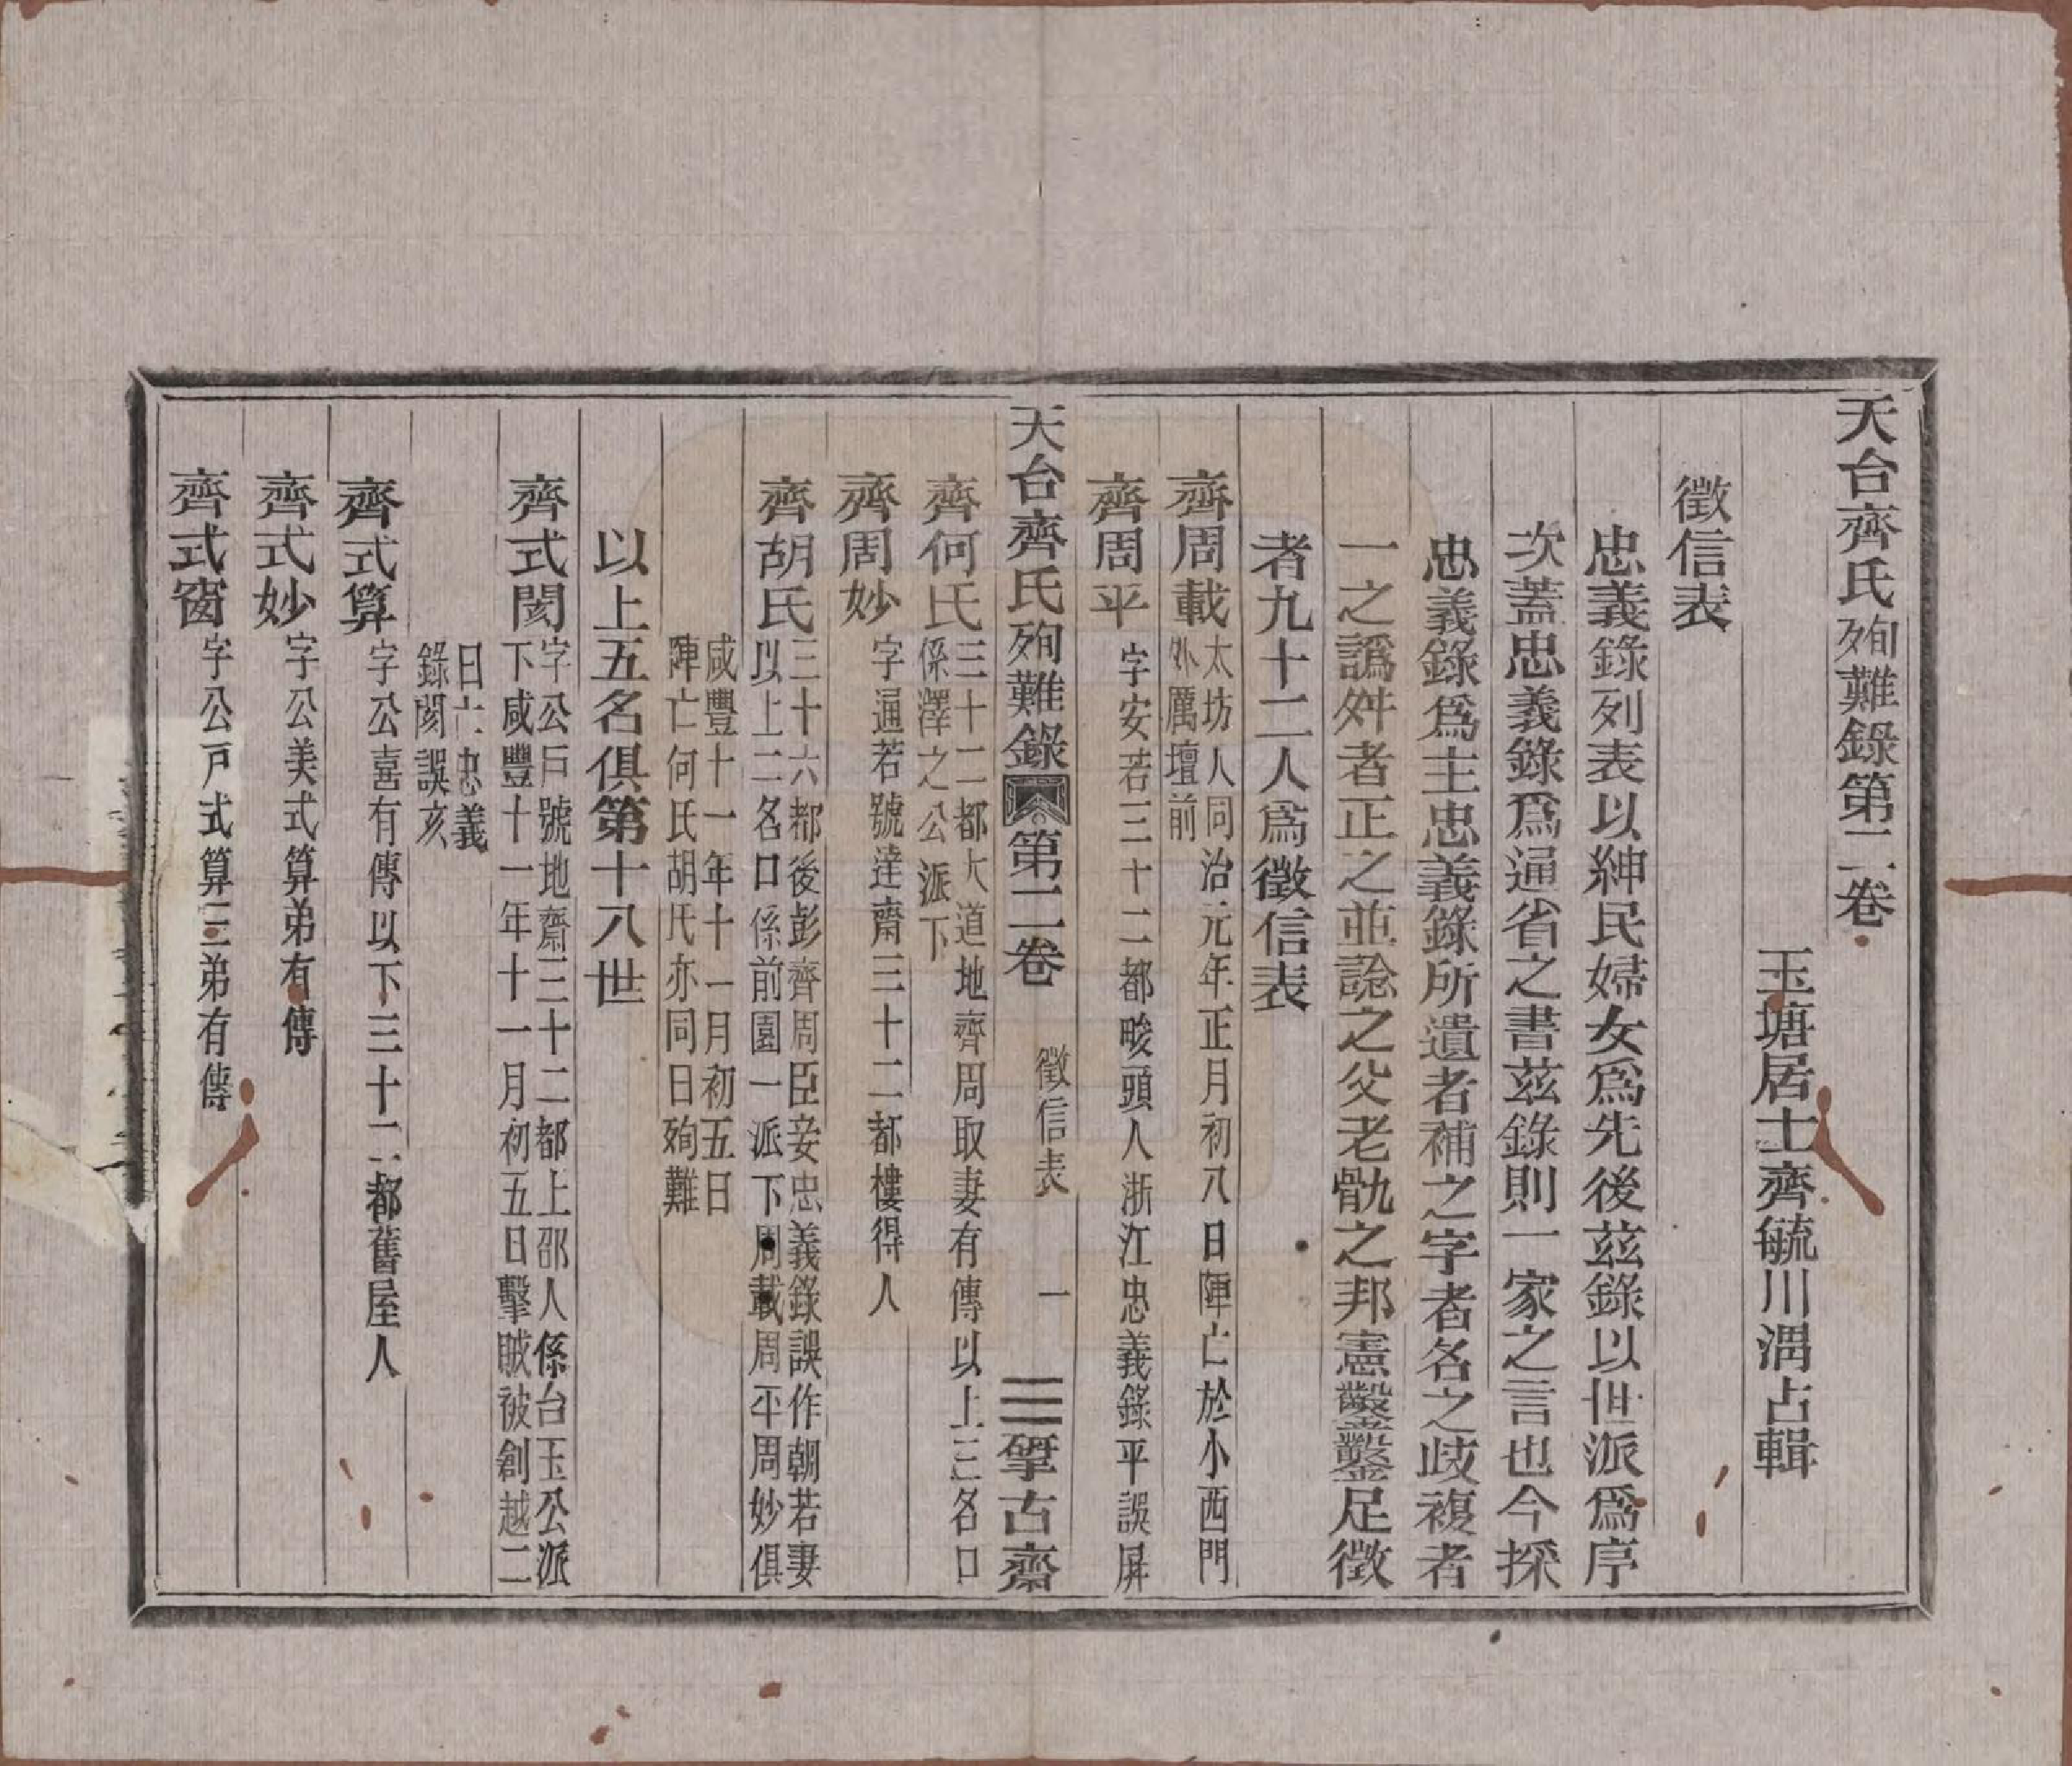 天台齊氏殉難錄第二卷
玉塘居士齊毓川渭占輯
徵信表
忠義錄列表以紳民婦女爲先後茲錄以世派爲序
次蓋忠義錄爲通省之書茲錄則一家之言也今採
忠義錄爲主忠義錄所遺者補之字者名之歧複者
一之譌舛者正之並諗之父老骩之邦憲鑿鑿足徵
者九十二人爲徵信表
齊周載
太坊人同治元年正月初八日陣亡於小西門
外厲壇前
齊周平
字安若三十二都畯頭人浙江忠義錄平誤屏
天台齊氏殉難錄 第二卷 徵信表 一 揅古齋
齊何氏
三十二都大道地齊周取妻有傳以上三名口
係澤之公派下
齊周妙
字通若號達齋三十二都樓得人
齊胡氏
三十六都後彭齊周臣妾忠義錄誤作朝若妻
以上二名口係前園一派下周載周平周妙俱
咸豐十一年十一月初五日
陣亡何氏胡氏亦同日殉難
以上五名俱第十八世
齊式閡
字公戶號地齋三十二都上邵人係台玉公派
下咸豐十一年十一月初五日擊賊被創越二
日亡忠義
錄閡誤亥
齊式算
字公喜有傳以下三十二都舊屋人
齊式妙
字公美式算弟有傳
齊式窗
字公戶式算三弟有傳